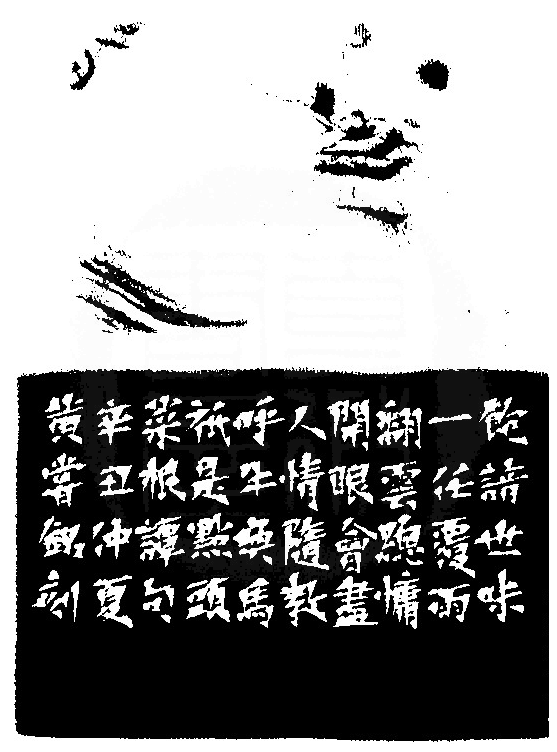 飽諳世味
一任覆雨
翻雲總慵
開眼會盡
人情隨教
呼牛喚馬
祇是點頭
菜根譚句
辛丑仲夏
黃嘗銘刻